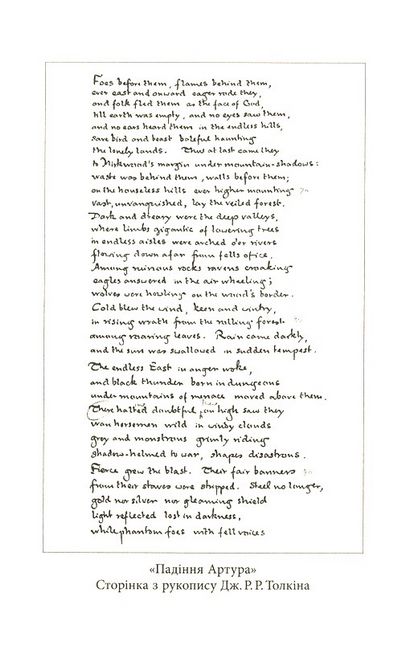 Foes before them, flames behind them,
ever east and onward eager rode they,
and folk fled them as the face of God,
till earth was empty, and no eyes saw them,
and no ears heard them in the endless hills,
save bird and beast baleful haunting
the lonely lands. Thus at last came they
to Mirkwood's margin under mountain-shadows:
waste was behind them, walls before them;
on the houseless hills ever higher mounting
vast, unvanquished, lay the veiled forest.
Dark and dreary were the deep valleys,
where limbs gigantic of lowering trees
in endless aisles were arched o'er rivers
flowing down afar from fells of ice.
Among ruinous rocks ravens croaking
eagles answered in the air wheeling;
wolves were howling on the wood's border.
Cold blew the wind, keen and wintry,
in rising wrath from the rolling forest
among roaring leaves. Rain came darkly,
and the sun was swallowed in sudden tempest.
The endless East in anger woke,
and black thunder born in dungeons
under mountains of menace moved above them.
There halted doubtful, on high saw they
wan horsemen wild in windy clouds
grey and monstrous grimly riding
shadow-helmed to war, shapes disastrous.
Fierce grew the blast. Their fair banners
from their staves were stripped. Steel no longer,
gold nor silver nor gleaming shield
light reflected lost in darkness,
while phantom foes with fell voices
«Падіння Артура»
Сторінка з рукопису Дж. Р. Р. Толкіна